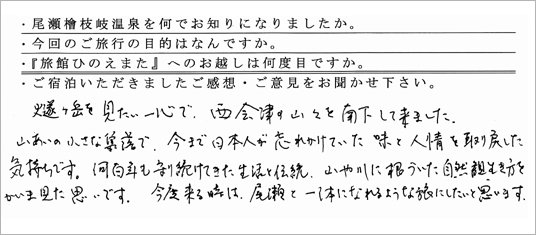 ・尾瀬檜枝岐温泉を何でお知りになりましたか。
・今回のご旅行の目的はなんですか。
・『旅館ひのえまた』へのお越しは何度目ですか。
・ご宿泊いただきましたご感想・ご意見をお聞かせ下さい。
燧ヶ岳を見たい一心で、西会津の山々を南下して来ました。
山あいの小さな集落で、今まで日本人が忘れかけていた味と人情を取り戻した
気持ちです。何百年も引き続けてきた生活と伝統、山や川に根づいた自然観生き方を
かいま見た思いです。今度来る時は、尾瀬と一体になれるような旅にしたいと思います。